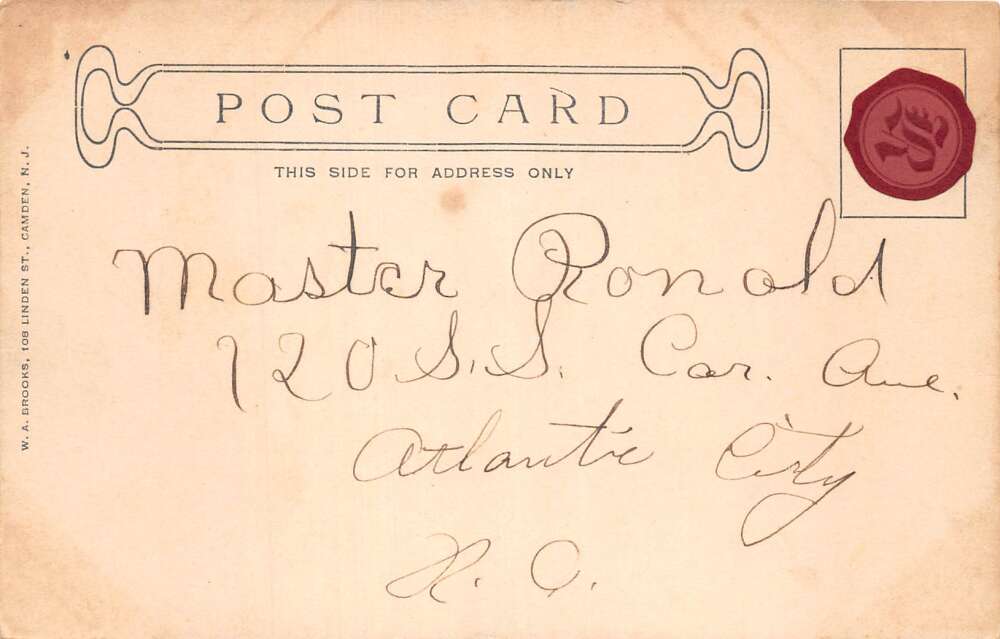 POST CARD
THIS SIDE FOR ADDRESS ONLY
W. A. BROOKS, 108 LINDEN ST., CAMDEN, N. J.
Master Ronald
120 S.S. Car. Ave.
Atlantic City